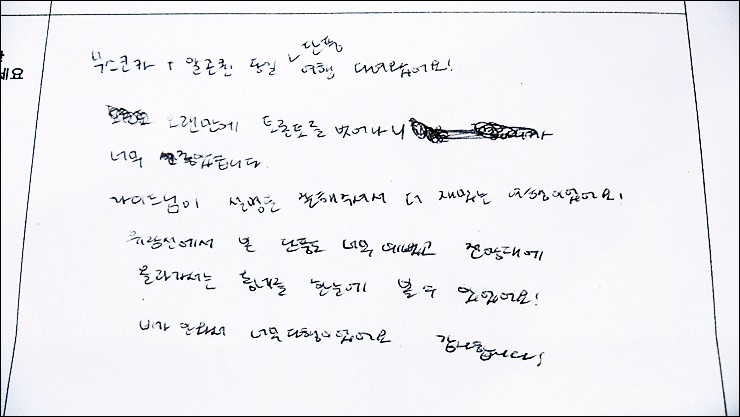 세요
무스코카 + 알곤퀸 당일 단풍 여행 다녀왔어요!
오랜만에 토론토를 벗어나니
너무 즐겁습니다.
가이드님이 설명을 잘해주셔서 더 재밌는 여행이었어요!
유람선에서 본 단풍도 너무 예뻤고 전망대에
올라가서는 동네를 한눈에 볼 수 있었어요!
비가 안와서 너무 다행이었어요 감사합니다!